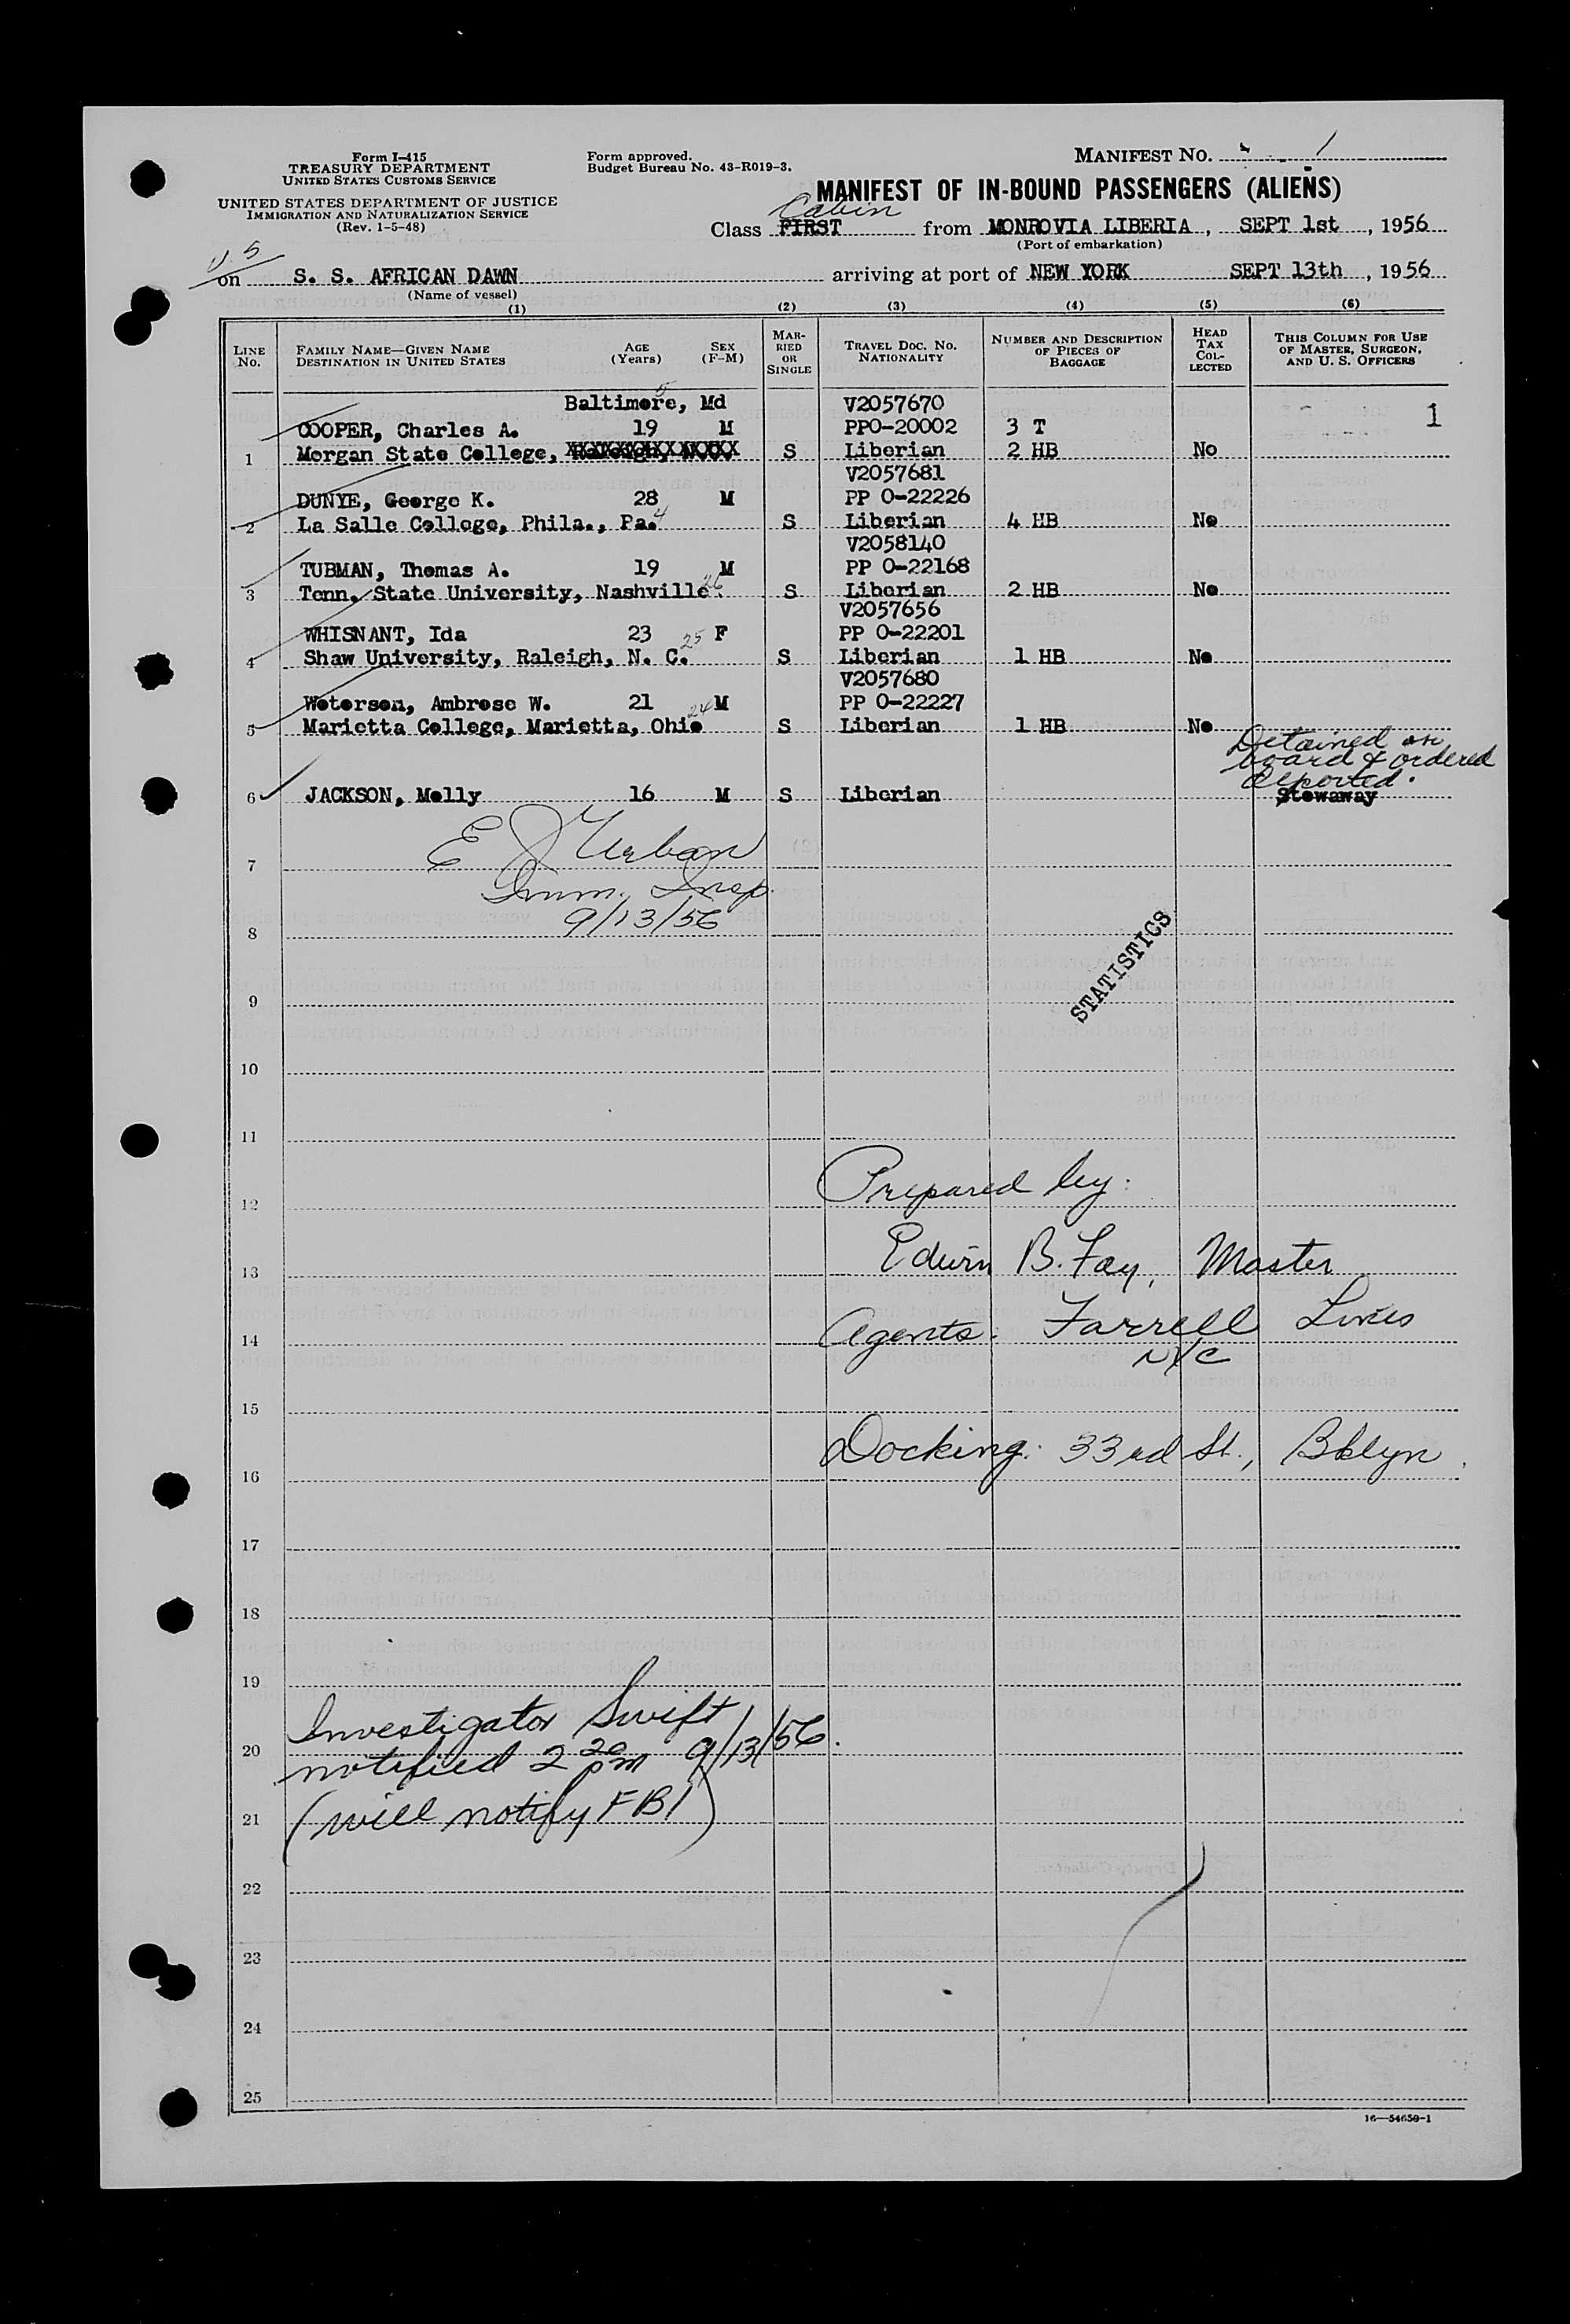 Form I-415
TREASURY DEPARTMENT
UNITED STATES CUSTOMS SERVICE
UNITED STATES DEPARTMENT OF JUSTICE
IMMIGRATION AND NATURALIZATION SERVICE
(Rev. 1-5-48)
Form approved.
Budget Bureau No. 43-R019-3.
MANIFEST NO. 1
MANIFEST OF IN-BOUND PASSENGERS (ALIENS)
Cabin
Class FIRST from MONROVIA LIBERIA, SEPT 1st, 1956
(Port of embarkation)
U.S
on S. S. AFRICAN DAWN arriving at port of NEW YORK SEPT 13th, 1956
(Name of vessel)
(1) (2) (3) (4) (5) (6)
LINE No. FAMILY NAME—GIVEN NAME DESTINATION IN UNITED STATES AGE (Years) SEX (F-M) MARRIED OR SINGLE TRAVEL DOC. NO. NATIONALITY NUMBER AND DESCRIPTION OF PIECES OF BAGGAGE HEAD TAX COLLECTED THIS COLUMN FOR USE OF MASTER, SURGEON, AND U. S. OFFICERS
Baltimore, Md V2057670
COOPER, Charles A. 19 M PPO-20002 3 T 1
1 Morgan State College, S Liberian 2 HB No
V2057681
DUNYE, George K. 28 M PP O-22226
2 La Salle College, Phila., Pa. 4 S Liberian 4 HB No
V2058140
TUBMAN, Thomas A. 19 M PP O-22168
3 Tenn. State University, Nashville. 26 S Liberian 2 HB No
V2057656
WHISNANT, Ida 23 F PP O-22201
4 Shaw University, Raleigh, N. C. 25 S Liberian 1 HB No
V2057680
Weterson, Ambrose W. 21 M PP O-22227
5 Marietta College, Marietta, Ohio 24 S Liberian 1 HB No
Detained on
board & ordered
deported.
6 JACKSON, Molly 16 M S Liberian Stowaway
E J Urban
7
Imm. Insp.
9/13/56
8
STATISTICS
9
10
11
Prepared by:
12
Edwin B. Fay, Master
13
Agents: Farrell Lines
14
NYC
15
Docking: 33rd St., Bklyn.
16
17
18
19
Investigator Swift
20
notified 2 20 pm 9/13/56.
(will notify FBI)
21
22
23
24
25
16—54650-1